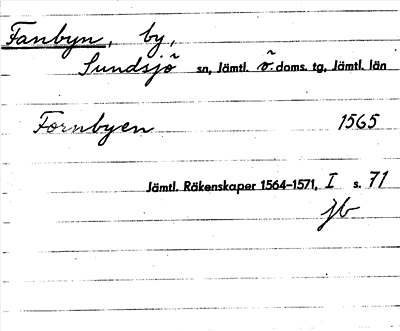 Fanbyn, by,
Sundsjö sn, Jämtl. ö. doms. tg, Jämtl. län
Fornbyen 1565
Jämtl. Räkenskaper 1564–1571, I s. 71
Jb